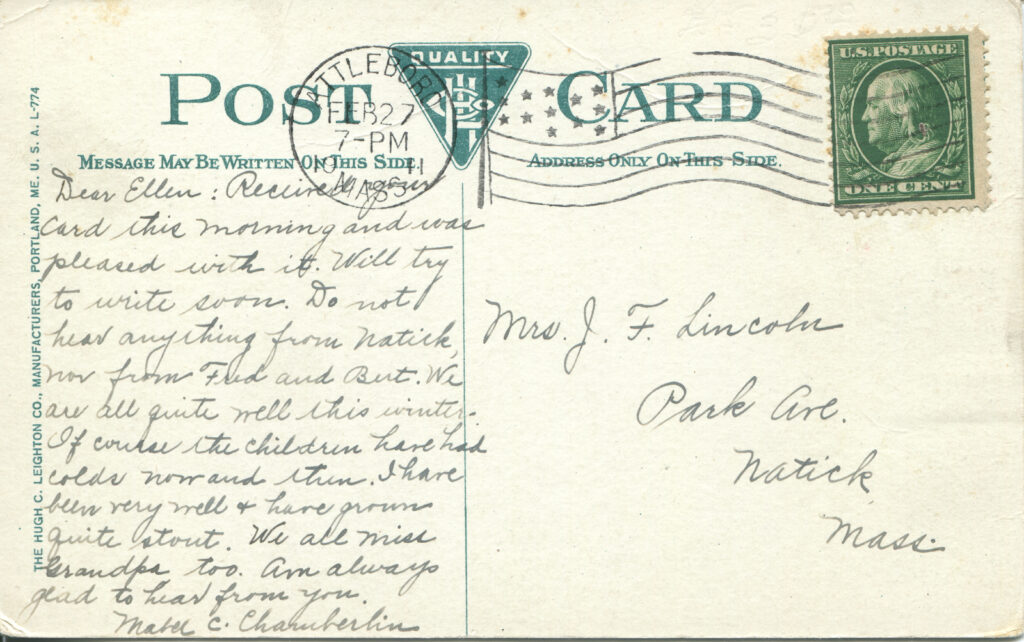 POST CARD
QUALITY
ATTLEBORO
FEB 27
7-PM
1911
MASS
U.S. POSTAGE
ONE CENT
MESSAGE MAY BE WRITTEN ON THIS SIDE.
ADDRESS ONLY ON THIS SIDE.
THE HUGH C. LEIGHTON CO., MANUFACTURERS, PORTLAND, ME. U. S. A. L-774
Dear Ellen: Received your
card this morning and was
pleased with it. Will try
to write soon. Do not
hear anything from Natick,
nor from Fred and Bert. We
are all quite well this winter.
Of course the children have had
colds now and then. I have
been very well + have grown
quite stout. We all miss
Grandpa too. Am always
glad to hear from you.
Mabel C. Chamberlin
Mrs. J. F. Lincoln
Park Ave.
Natick
Mass.